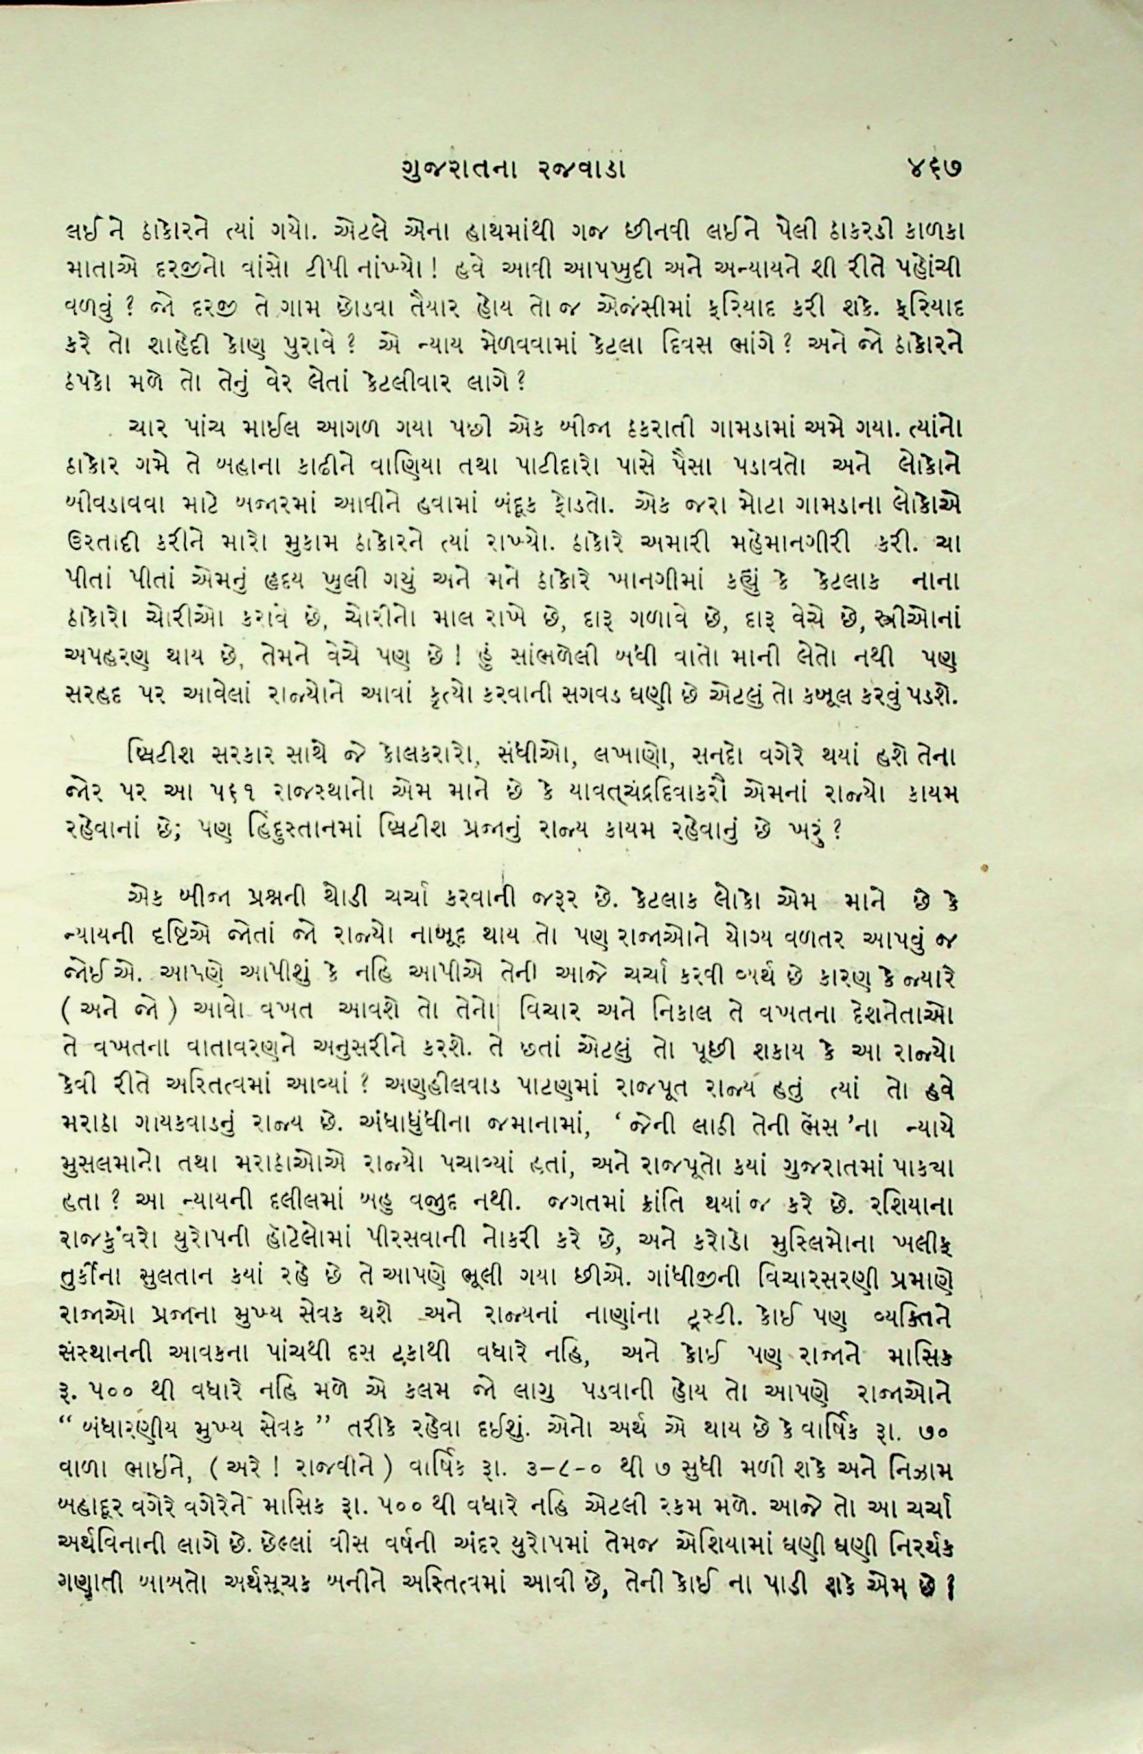 ગુજરાતના રજવાડા ૪૬૭
લઈને ઠાકોરને ત્યાં ગયો. એટલે એના હાથમાંથી ગજ છીનવી લઈને પેલી ઠાકરડી કાળકા
માતાએ દરજીનો વાંસો ટીપી નાંખ્યો! હવે આવી આપખુદી અને અન્યાયને શી રીતે પહોંચી
વળવું? જો દરજી તે ગામ છોડવા તૈયાર હોય તો જ એજંસીમાં ફરિયાદ કરી શકે. ફરિયાદ
કરે તો શાહેદી કોણ પુરાવે? એ ન્યાય મેળવવામાં કેટલા દિવસ ભાંગે? અને જો ઠાકોરને
ઠપકો મળે તો તેનું વેર લેતાં કેટલીવાર લાગે?
ચાર પાંચ માઈલ આગળ ગયા પછી એક બીજા ઠકરાતી ગામડામાં અમે ગયા. ત્યાંનો
ઠાકોર ગમે તે બહાના કાઢીને વાણિયા તથા પાટીદારો પાસે પૈસા પડાવતો અને લોકોને
બીવડાવવા માટે બજારમાં આવીને હવામાં બંદૂક ફોડતો. એક જરા મોટા ગામડાના લોકોએ
ઉસ્તાદી કરીને મારો મુકામ ઠાકોરને ત્યાં રાખ્યો. ઠાકોરે અમારી મહેમાનગીરી કરી. ચા
પીતાં પીતાં એમનું હૃદય ખુલી ગયું અને મને ઠાકોરે ખાનગીમાં કહ્યું કે કેટલાક નાના
ઠાકોરો ચોરીઓ કરાવે છે, ચોરીનો માલ રાખે છે, દારૂ ગળાવે છે, દારૂ વેચે છે, સ્ત્રીઓનાં
અપહરણ થાય છે, તેમને વેચે પણ છે! હું સાંભળેલી બધી વાતો માની લેતો નથી પણ
સરહદ પર આવેલાં રાજ્યોને આવાં કૃત્યો કરવાની સગવડ ઘણી છે એટલું તો કબૂલ કરવું પડશે.
બ્રિટીશ સરકાર સાથે જે કોલકરારો, સંધીઓ, લખાણો, સનદો વગેરે થયાં હશે તેના
જોર પર આ ૫૬૧ રાજસ્થાનો એમ માને છે કે યાવત્‌ચંદ્રદિવાકરૌ એમનાં રાજ્યો કાયમ
રહેવાનાં છે; પણ હિંદુસ્તાનમાં બ્રિટીશ પ્રજાનું રાજ્ય કાયમ રહેવાનું છે ખરું?
એક બીજા પ્રશ્નની થોડી ચર્ચા કરવાની જરૂર છે. કેટલાક લોકો એમ માને છે કે
ન્યાયની દૃષ્ટિએ જોતાં જો રાજ્યો નાબૂદ થાય તો પણ રાજાઓને યોગ્ય વળતર આપવું જ
જોઈએ. આપણે આપીશું કે નહિ આપીએ તેની આજે ચર્ચા કરવી વ્યર્થ છે કારણ કે જ્યારે
(અને જો) આવો વખત આવશે તો તેનો વિચાર અને નિકાલ તે વખતના દેશનેતાઓ
તે વખતના વાતાવરણને અનુસરીને કરશે. તે છતાં એટલું તો પૂછી શકાય કે આ રાજ્યો
કેવી રીતે અસ્તિત્વમાં આવ્યાં? અણહીલવાડ પાટણમાં રાજપૂત રાજ્ય હતું ત્યાં તો હવે
મરાઠા ગાયકવાડનું રાજ્ય છે. અંધાધુંધીના જમાનામાં, ‘જેની લાઠી તેની ભેંસ’ના ન્યાયે
મુસલમાનો તથા મરાઠાઓએ રાજ્યો પચાવ્યાં હતાં, અને રાજપૂતો ક્યાં ગુજરાતમાં પાક્યા
હતા? આ ન્યાયની દલીલમાં બહુ વજુદ નથી. જગતમાં ક્રાંતિ થયાં જ કરે છે. રશિયાના
રાજકુંવરો યુરોપની હૉટેલોમાં પીરસવાની નોકરી કરે છે, અને કરોડો મુસ્લિમોના ખલીફ
તુર્કીના સુલતાન ક્યાં રહે છે તે આપણે ભૂલી ગયા છીએ. ગાંધીજીની વિચારસરણી પ્રમાણે
રાજાઓ પ્રજાના મુખ્ય સેવક થશે અને રાજ્યનાં નાણાંના ટ્રસ્ટી. કોઈ પણ વ્યક્તિને
સંસ્થાનની આવકના પાંચથી દસ ટકાથી વધારે નહિ, અને કોઈ પણ રાજાને માસિક
રૂ. ૫૦૦ થી વધારે નહિ મળે એ કલમ જો લાગુ પડવાની હોય તો આપણે રાજાઓને
“બંધારણીય મુખ્ય સેવક” તરીકે રહેવા દઈશું. એનો અર્થ એ થાય છે કે વાર્ષિક રૂા. ૭૦
વાળા ભાઈને, (અરે! રાજવીને) વાર્ષિક રૂા. ૩-૮-૦ થી ૭ સુધી મળી શકે અને નિઝામ
બહાદૂર વગેરે વગેરેને માસિક રૂા. ૫૦૦ થી વધારે નહિ એટલી રકમ મળે. આજે તો આ ચર્ચા
અર્થવિનાની લાગે છે. છેલ્લાં વીસ વર્ષની અંદર યુરોપમાં તેમજ એશિયામાં ઘણી ઘણી નિરર્થક
ગણાતી બાબતો અર્થસૂચક બનીને અસ્તિત્વમાં આવી છે, તેની કોઈ ના પાડી શકે એમ છે!